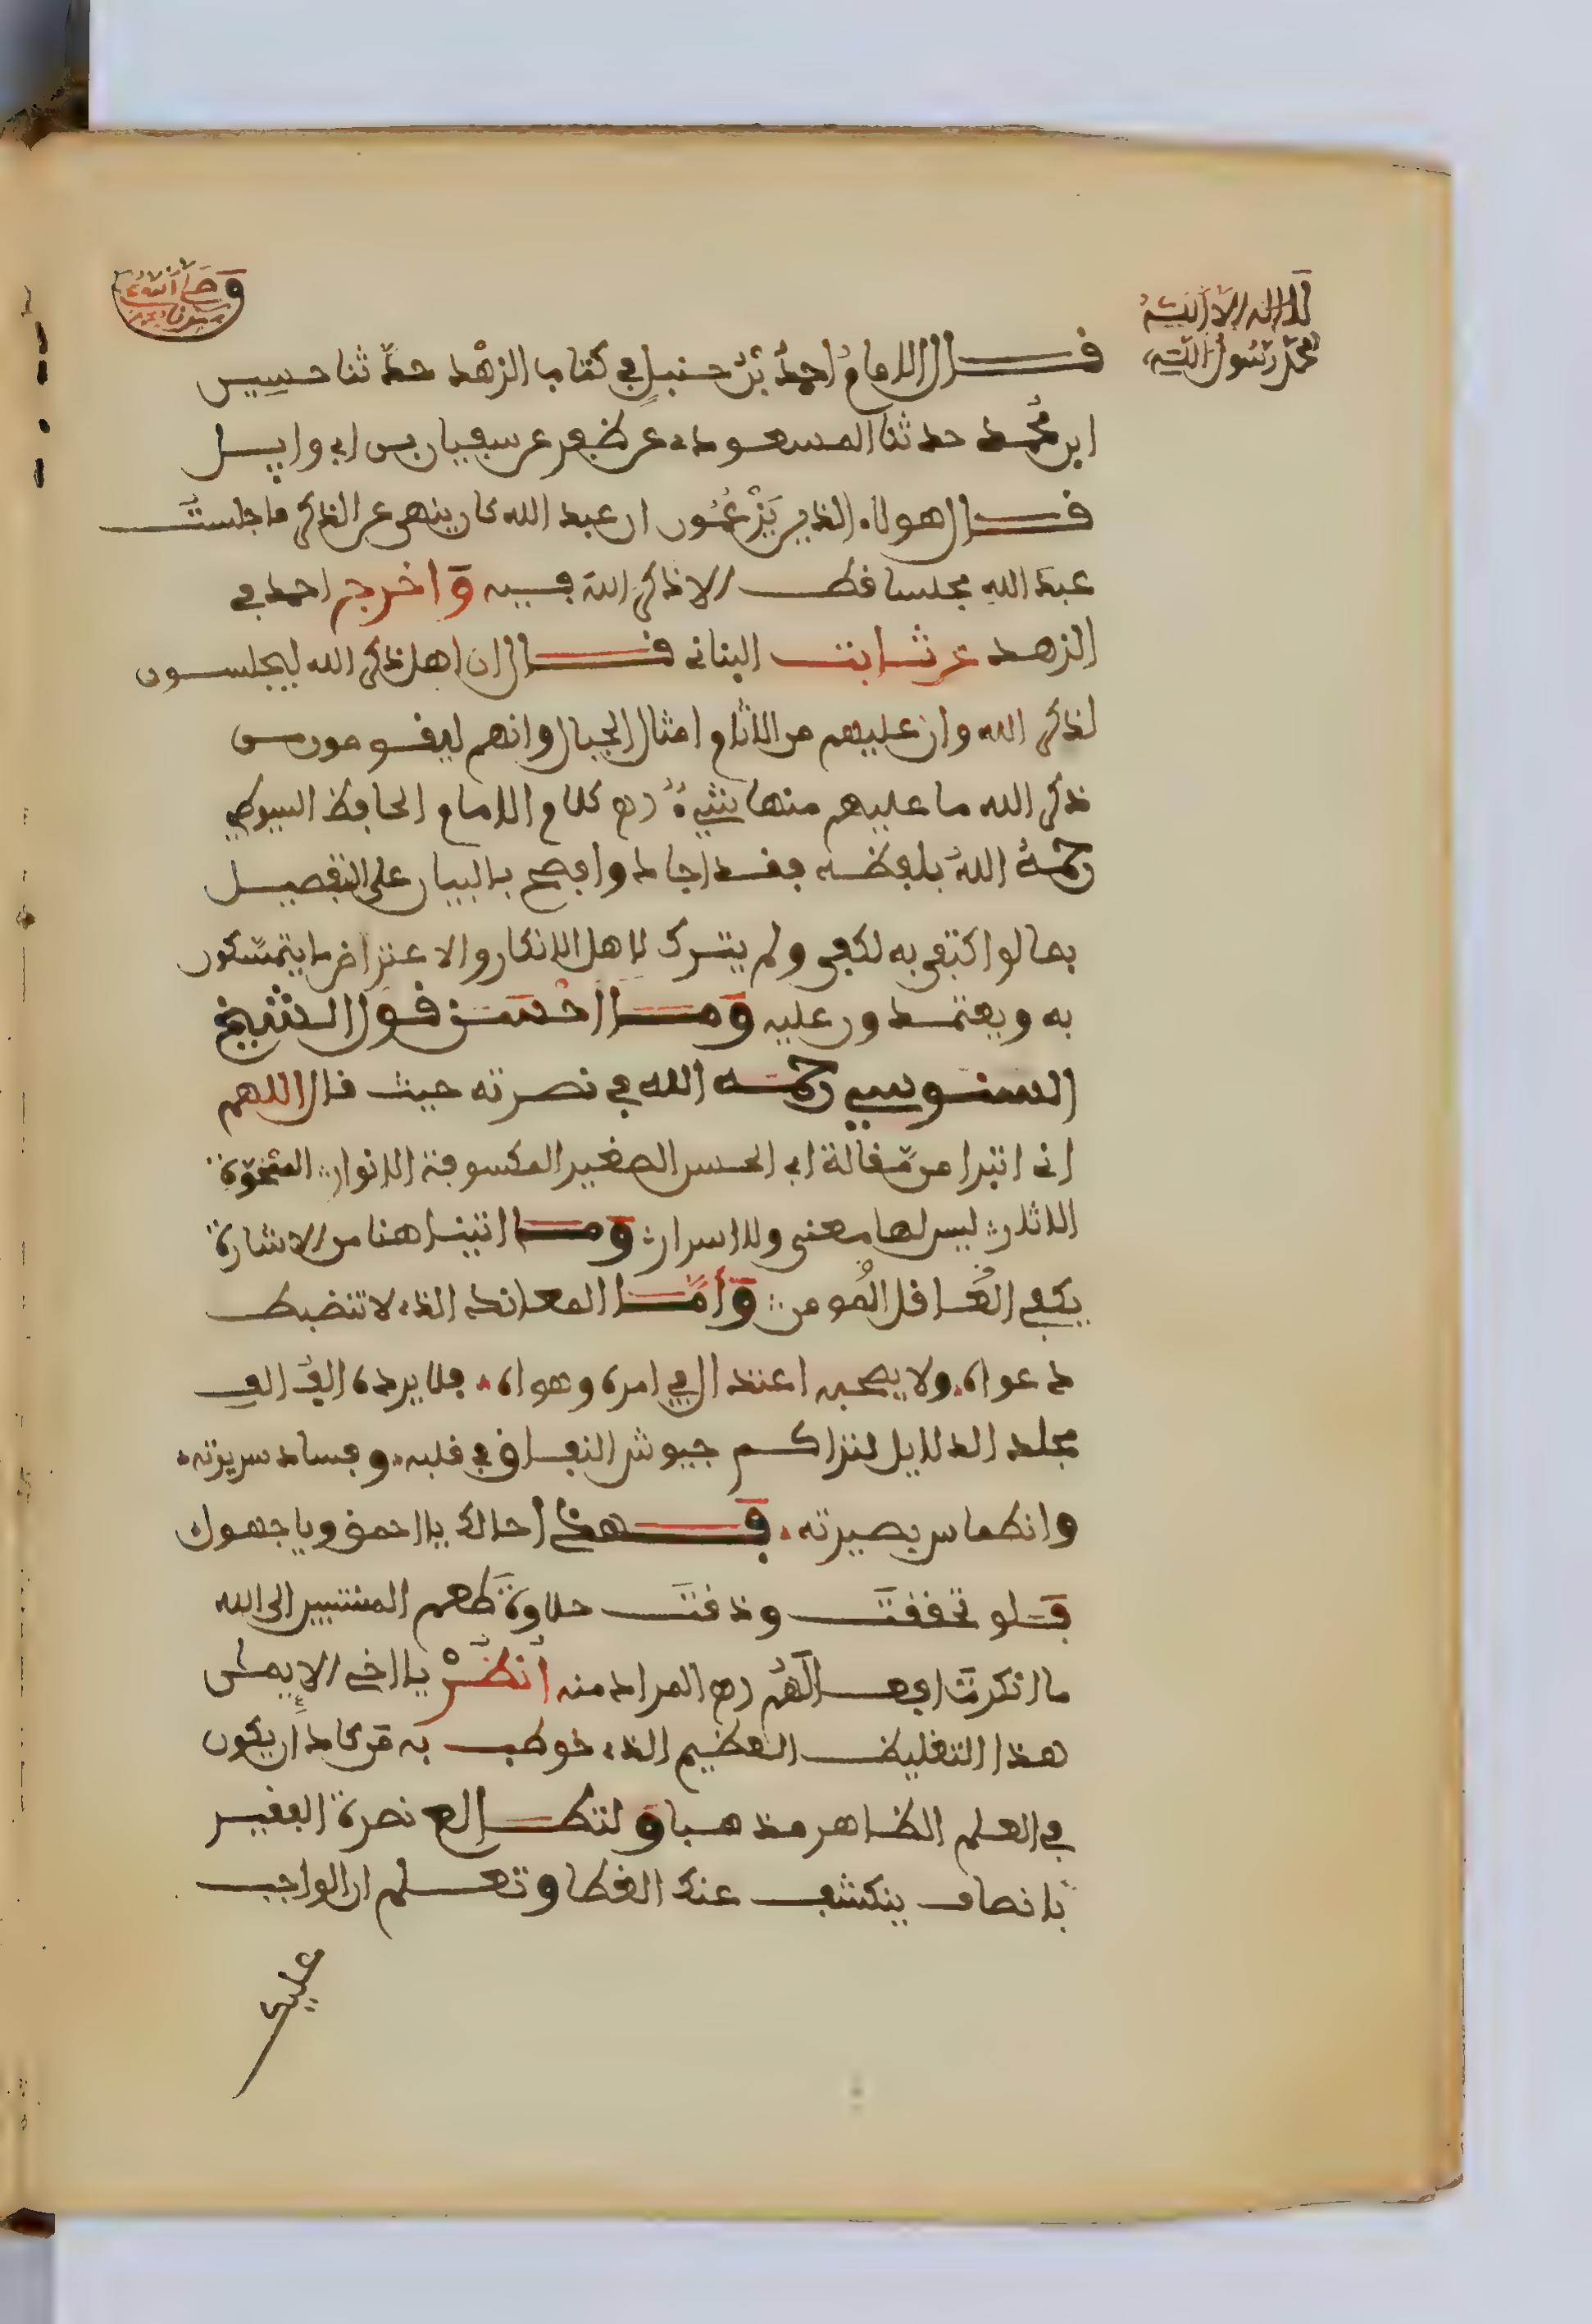 لا اله الا الله
محمد رسول الله
وصلى الله على
سيدنا محمد
قال الامام احمد بن حنبل في كتاب الزهد حدثنا حسين
ابن محمد حدثنا المسعودي عن عن سفيان بن ابي وايل
قال هولاء الذين يزعمون ان عبد الله كان ينهى عن الذكر ما جلست
عبد الله مجلسا قط الا ذكر الله فيه واخرج احمد في
الزهد عن ثابت البناني قال ان اهل ذكر الله ليجلسون
لذكر الله وان عليهم من الاثام امثال الجبال وانهم ليقومون من
ذكر الله ما عليهم منها شيء اه كلام الامام الحافظ السيوطي
رحمه الله بلفظه فقد اجاد وافصح بالبيان على التفصيل
بما لو اكتفى به لكفى ولم يترك لاهل الانكار والاعتراض ما يتمسكون
به ويعتمدون عليه وما احسن قول الشيخ
السنوسي رحمه الله في نصرته حيث قال اللهم
اني اتبرا من مقالة ابي الحسن الصغير المكسوفة الانوار الممحوة
الاثار ليس لها معنى ولا اسرار وما اتينا هنا من الاشارة
يكفي العاقل المومن وأما المعاند الذي لا تنضبط
دعواه ولا يصحبه اعتدال في امره وهواه فلا يرده الف الف
مجلد الدلايل لتراكم جيوش النفاق في قلبه وفساد سريرته
وانطماس بصيرته فهذا حالك يا احمق ويا جهول
فلو تحققت وذقت حلاوة طعم المنتسبين الى الله
ما انكرت افعالهم اه المراد منه أنظر يا اخي الى
هذا التغليظ العظيم الذي خوطب به من كاد ان يكون
في العلم الظاهر مذهبا ولتطالع نصرة الفقير
بانصاف ينكشف عنك الغطا وتعلم ان الواجب